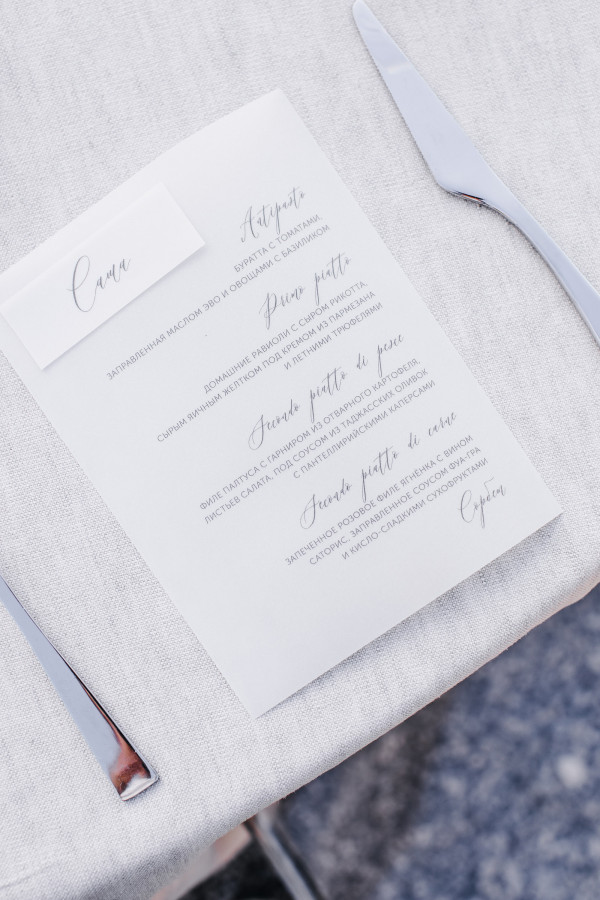 Саша
Antipasto
БУРАТТА С ТОМАТАМИ,
ЗАПРАВЛЕННАЯ МАСЛОМ ЭВО И ОВОЩАМИ С БАЗИЛИКОМ
Primo piatto
ДОМАШНИЕ РАВИОЛИ С СЫРОМ РИКОТТА,
СЫРЫМ ЯИЧНЫМ ЖЕЛТКОМ ПОД КРЕМОМ ИЗ ПАРМЕЗАНА
И ЛЕТНИМИ ТРЮФЕЛЯМИ
Secondo piatto di pesce
ФИЛЕ ПАЛТУСА С ГАРНИРОМ ИЗ ОТВАРНОГО КАРТОФЕЛЯ,
ЛИСТЬЕВ САЛАТА, ПОД СОУСОМ ИЗ ТАДЖАССКИХ ОЛИВОК
С ПАНТЕЛЛИРИЙСКИМИ КАПЕРСАМИ
Secondo piatto di carne
ЗАПЕЧЕННОЕ РОЗОВОЕ ФИЛЕ ЯГНЁНКА С ВИНОМ
САТОРИС, ЗАПРАВЛЕННОЕ СОУСОМ ФУА-ГРА
И КИСЛО-СЛАДКИМИ СУХОФРУКТАМИ
Сорбет